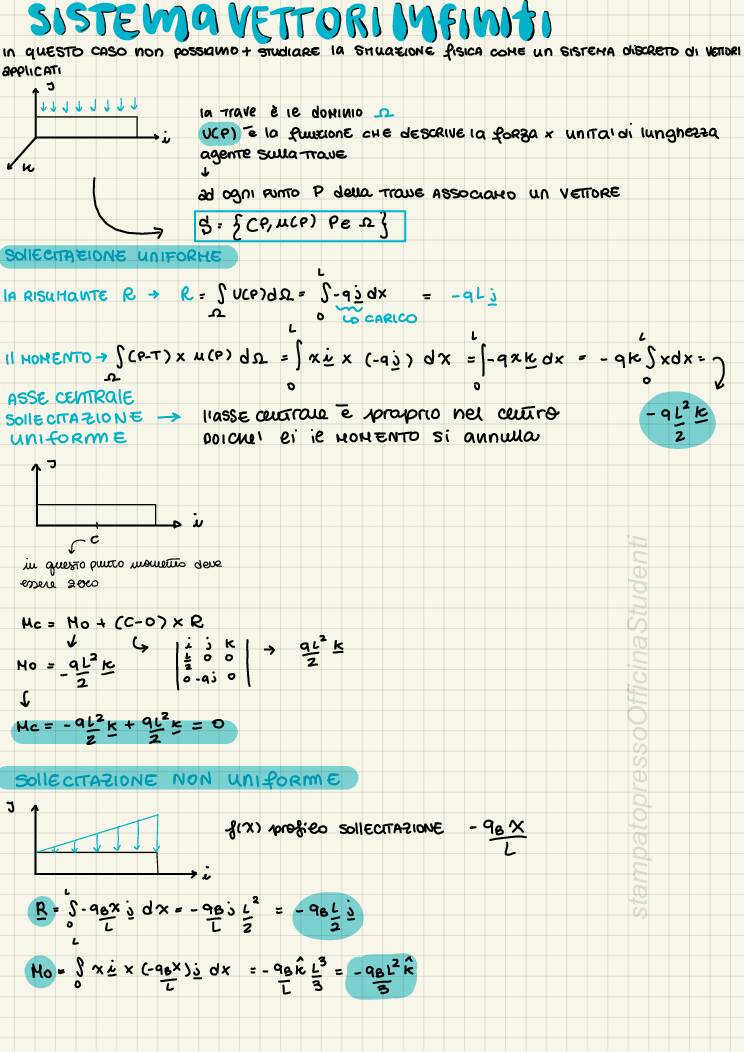 SISTEMA VETTORI INFINITI
in QUESTO CASO non POSSIAMO + STUDIARE la SITUAZIONE fISICA COME un SISTEMA DISCRETO di VETTORI
APPLICATI
J
i
K
la TRAVE è le DOMINIO Ω
U(P) è la funzione CHE DESCRIVE la forza x unita' di lunghezza
agente sulla TRAVE
↓
ad ogni PUNTO P della TRAVE ASSOCIAMO un VETTORE
S = { (P, u(P) P ∈ Ω }
SOLLECITAZIONE UNIFORME
la RISULTANTE R → R = ∫_Ω U(P) dΩ = ∫_0^L -q j dx = -qL j
↳ CARICO
Il MOMENTO → ∫_Ω (P-T) x u(P) dΩ = ∫_0^L x i x (-q j) dx = ∫_0^L -q x k dx = - q k ∫_0^L x dx =
-qL²/2 k
ASSE CENTRALE
SOLLECITAZIONE → l'asse centrale è proprio nel centro
UNIFORME poiche' ei le MOMENTO si annulla
J
i
C
in questo punto momento deve
essere zero
Mc = Mo + (C-O) x R
Mo = -qL²/2 k
| i j k |
| L/2 0 0 |
| 0 -qj 0 |
→ qL²/2 k
Mc = -qL²/2 k + qL²/2 k = 0
SOLLECITAZIONE NON UNIFORME
J
i
f(x) profilo SOLLECITAZIONE - qB x/L
R = ∫_0^L -qB x/L j dx = - qB/L j L²/2 = - qB L/2 j
Mo = ∫_0^L x i x (-qB x)/L j dx = - qB/L k̂ L³/3 = - qB L²/3 k̂
stampatopressoOfficinaStudenti